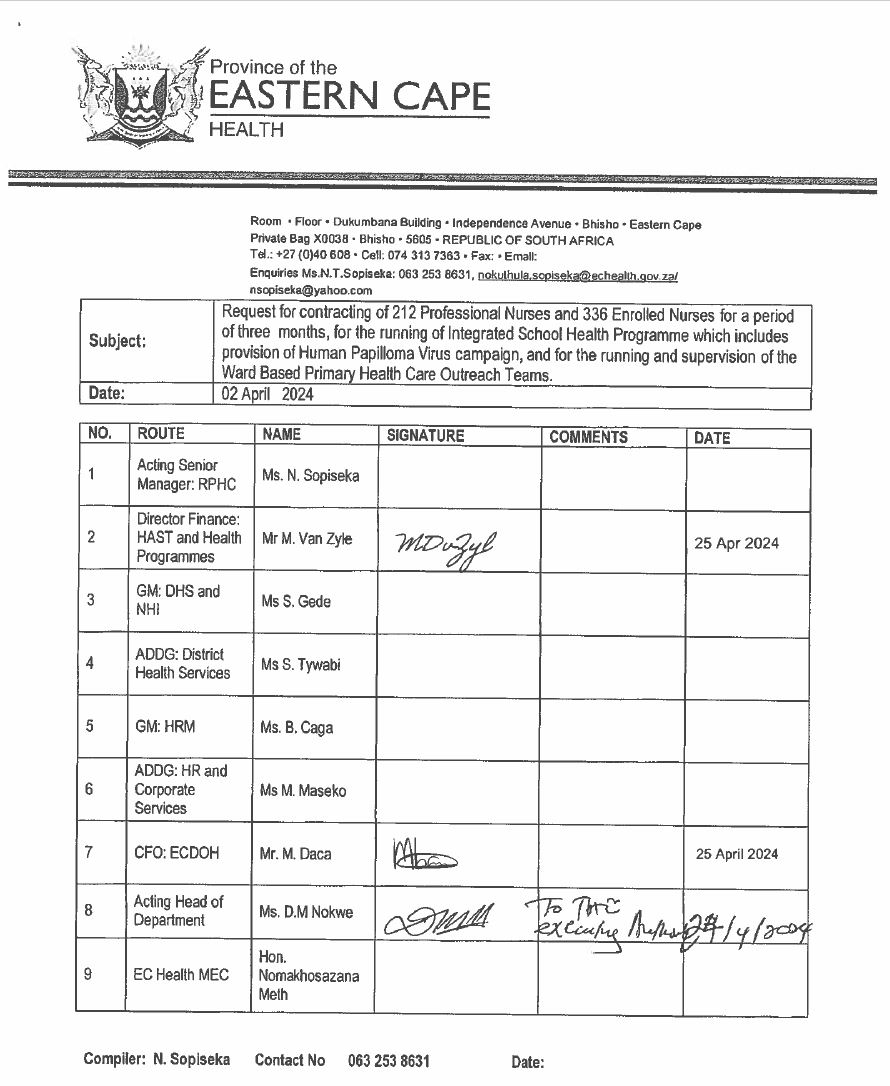 Province of the
EASTERN CAPE
HEALTH
Room • Floor • Dukumbana Building • Independence Avenue • Bhisho • Eastern Cape
Private Bag X0038 • Bhisho • 5605 • REPUBLIC OF SOUTH AFRICA
Tel.: +27 (0)40 608 • Cell: 074 313 7363 • Fax: • Email:
Enquiries Ms.N.T.Sopiseka: 063 253 8631, nokuthula.sopiseka@echealth.gov.za/
nsopiseka@yahoo.com
Subject:
Request for contracting of 212 Professional Nurses and 336 Enrolled Nurses for a period
of three months, for the running of Integrated School Health Programme which includes
provision of Human Papilloma Virus campaign, and for the running and supervision of the
Ward Based Primary Health Care Outreach Teams.
Date: 02 April 2024
NO. ROUTE NAME SIGNATURE COMMENTS DATE
1 Acting Senior
Manager: RPHC Ms. N. Sopiseka
2 Director Finance:
HAST and Health
Programmes Mr M. Van Zyle 25 Apr 2024
3 GM: DHS and
NHI Ms S. Gede
4 ADDG: District
Health Services Ms S. Tywabi
5 GM: HRM Ms. B. Caga
6 ADDG: HR and
Corporate
Services Ms M. Maseko
7 CFO: ECDOH Mr. M. Daca 25 April 2024
8 Acting Head of
Department Ms. D.M Nokwe To The
executive /4/2024
9 EC Health MEC Hon.
Nomakhosazana
Meth
Compiler: N. Sopiseka Contact No 063 253 8631 Date: